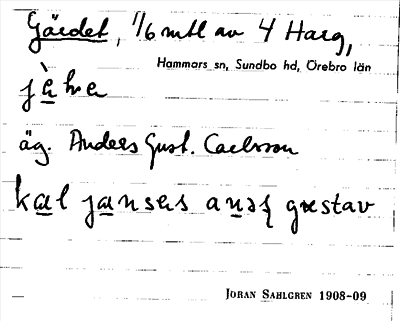 Gärdet, 1/6 mtl av 4 Harg,
Hammars sn, Sundbo hd, Örebro län
äg. Anders Gust. Carlsson
kal jansens
JÖRAN SAHLGREN 1908-09